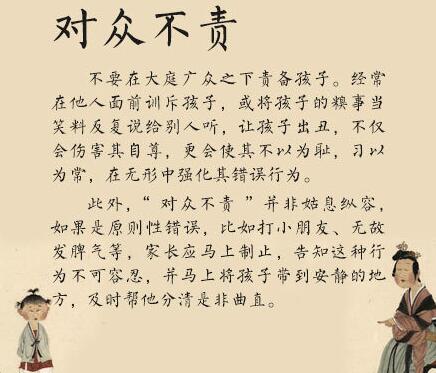 对众不责
不要在大庭广众之下责备孩子。经常
在他人面前训斥孩子，或将孩子的糗事当
笑料反复说给别人听，让孩子出丑，不仅
会伤害其自尊，更会使其不以为耻，习以
为常，在无形中强化其错误行为。
此外，“对众不责”并非姑息纵容，
如果是原则性错误，比如打小朋友、无故
发脾气等，家长应马上制止，告知这种行
为不可容忍，并马上将孩子带到安静的地
方，及时帮他分清是非曲直。